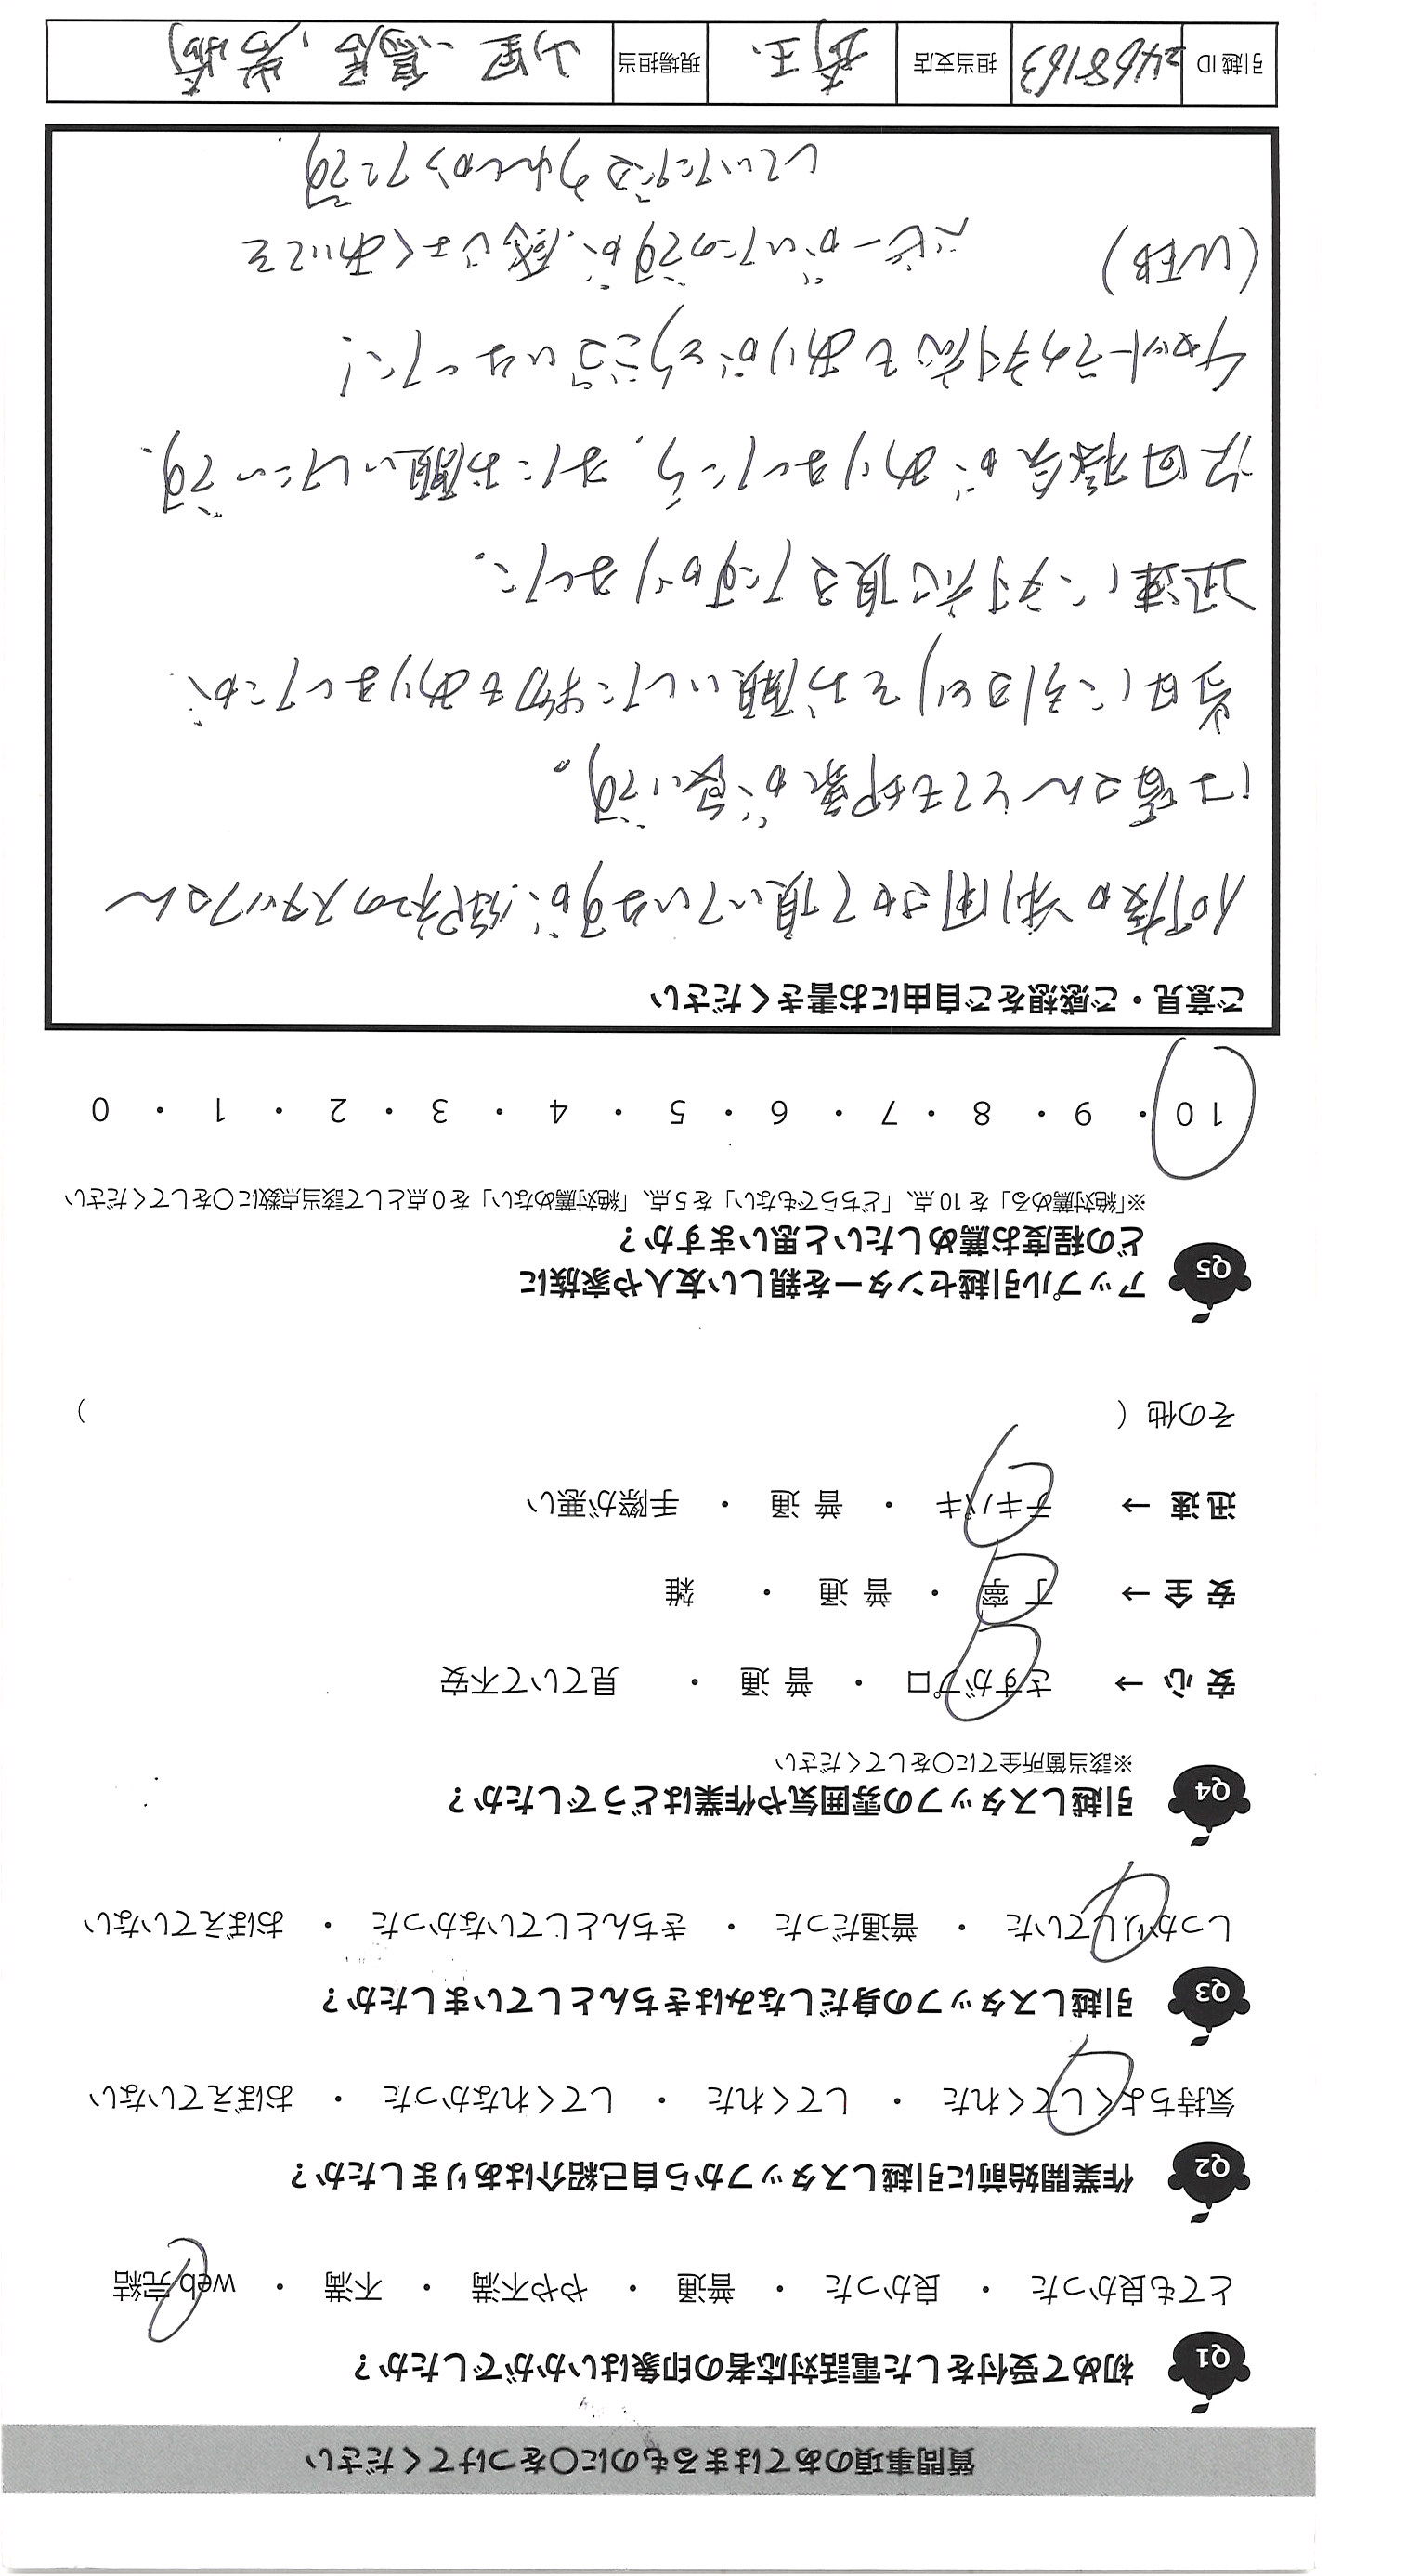 質問事項のあてはまるものに〇をつけてください
Q1 初めて受付をした電話対応者の印象はいかがでしたか？
とても良かった ・ 良かった ・ 普通 ・ やや不満 ・ 不満 ・ web完結
Q2 作業開始前に引越しスタッフから自己紹介はありましたか？
気持ちよくしてくれた ・ してくれた ・ してくれなかった ・ おぼえていない
Q3 引越しスタッフの身だしなみはきちんとしていましたか？
しっかりしていた ・ 普通だった ・ きちんとしていなかった ・ おぼえていない
Q4 引越しスタッフの雰囲気や作業はどうでしたか？
※該当箇所全てに〇をしてください
安心 → さすがプロ ・ 普通 ・ 見ていて不安
安全 → 丁寧 ・ 普通 ・ 雑
迅速 → テキパキ ・ 普通 ・ 手際が悪い
その他（ ）
Q5 アップル引越センターを親しい友人や家族に
どの程度お薦めしたいと思いますか？
※「絶対薦める」を10点、「どちらでもない」を5点、「絶対薦めない」を0点として該当点数に〇をしてください
10 ・ 9 ・ 8 ・ 7 ・ 6 ・ 5 ・ 4 ・ 3 ・ 2 ・ 1 ・ 0
ご意見・ご感想をご自由にお書きください
何度か利用させて頂いていますが、のスタッフさん
は皆さんとても印象が良いです。
当日に引取りをお願いした物もありましたが、
迅速に対応頂き助かりました。
次回機会がありましたら、またお願いしたいです。
チャットでの対応もありがとうございました!
(WEB) ベビーがいたのですが、感じよくあいさつ
していただきうれしかったです。
引越ID 2468163 担当支店 埼玉 現場担当 山里、鳥居、岩崎